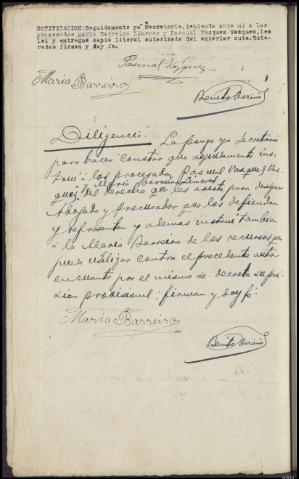 NOTIFICACION: Seguidamente yo Secretario, teniendo ante mi a los
procesados Maria Barreiro Linares y Pascual Vazquez Vazquez, les
lei y entregue copia literal autorizada del anterior auto. Ente-
rados firman y doy fe.
Pascual Vázquez
María Barreiro
Benito
Diligencia. La pongo yo Secretario
para hacer constar que seguidamente ins-
trui a los procesados Pascual Vazquez Vaz-
quez y María Barreiro Linares
del derecho que les asiste para designar
Abogado y procurador que los defiendan
y representen y ademas instrui tambien
a la María Barreiro de los recursos que
puede utilizar contra el precedente auto
en cuanto por el mismo se decreta su pri-
sion provisional; firman y doy fe.
María Barreiro
Benito